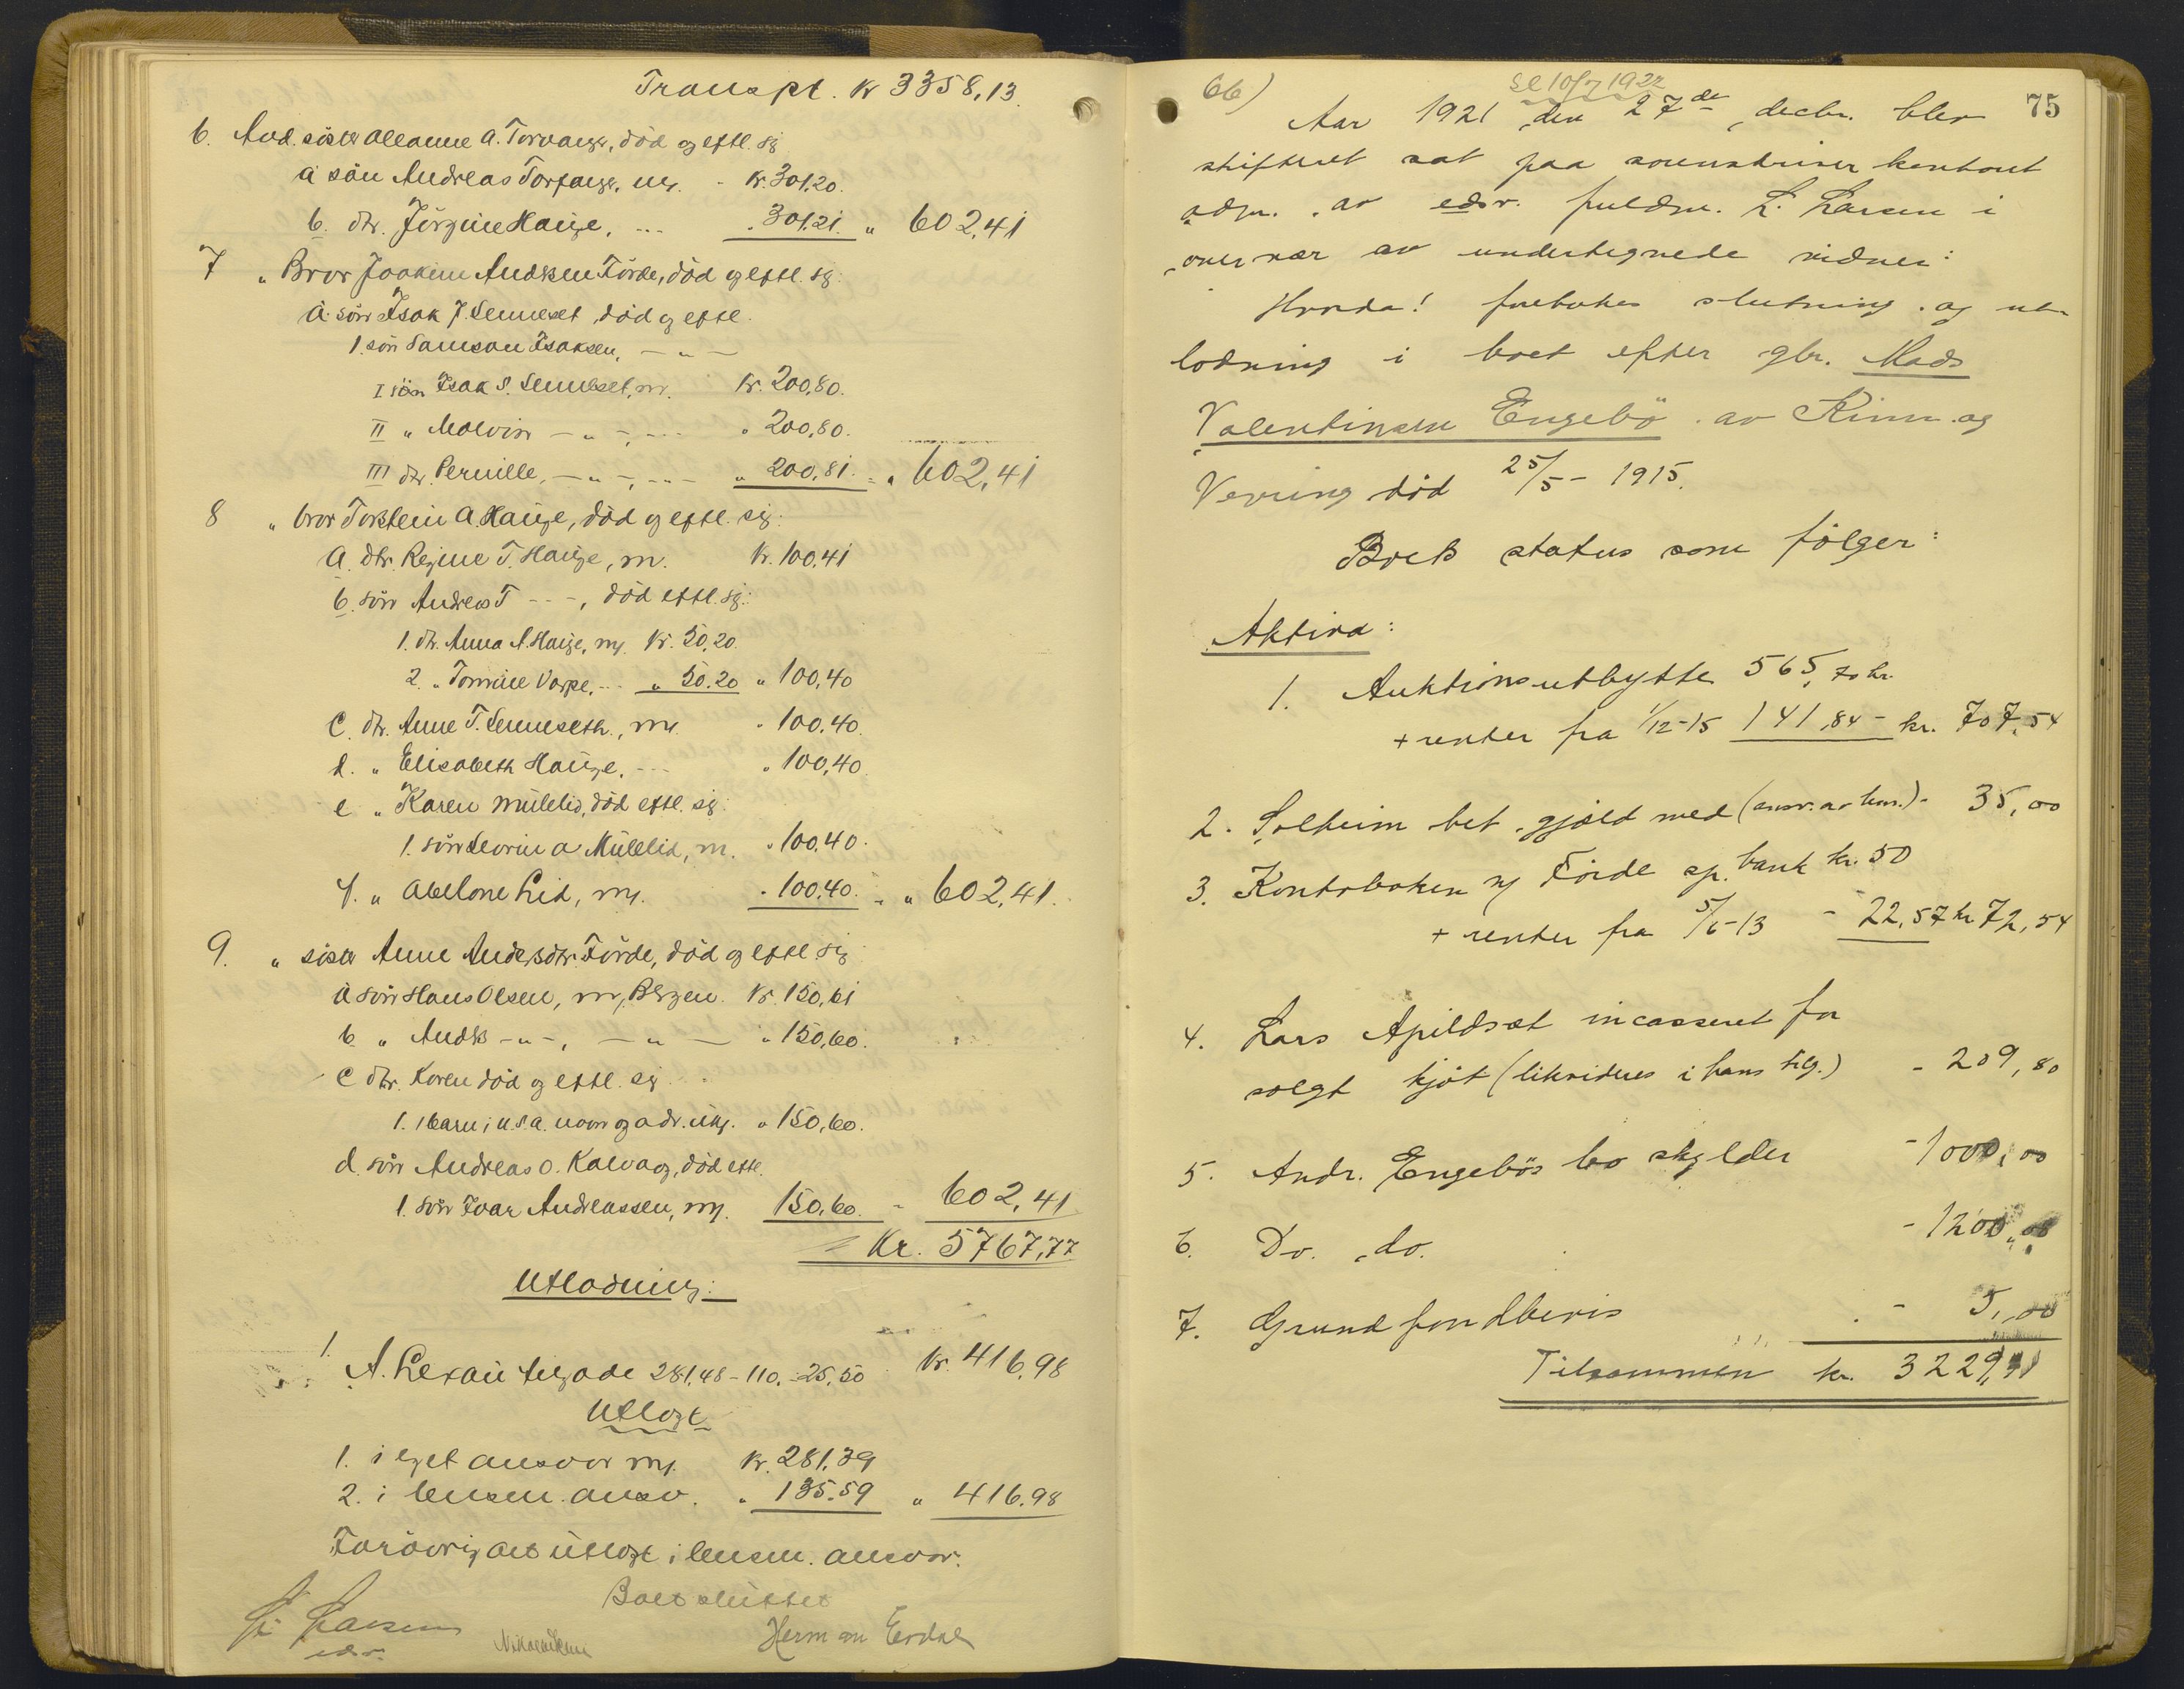 Transpt. Kr 3358,13.
6. Avd. söster Oleanne A. Torvanger, död og eftl. sig
a sön Andreas Torvanger, mg. - Kr. 301,20.
b. dtr. Jörgine Hauge, --- " 301,21. " 602,41
7 " Bror Joakim Andersen Förde, död og eftl. sig:
a. sön Isak J. Senneset, död og eftl.
1. sön Samson Isaksen, - " -
I sön Isak S. Senneset, m. Kr. 200,80.
II " Malvin - " -, --- " 200,80.
III dtr. Pernille, - " -, --- " 200,81. = " 602,41
8 " bror Torstein A. Hauge, död og eftl. sig:
a. dtr. Regine T. Hauge, m. Kr. 100,41
b. sön Andreas T - - -, död eftl. sig:
1. dtr. Anna A. Hauge, mg. Kr. 50,20.
2. " Tomine Varpe, --- " 50.20 " 100,40
c. dtr. Anne T. Senneseth, mg. " 100,40.
d. " Elisabeth Hauge, --- " 100,40
e " Karen Mulelid, död eftl. sig:
1. sön Severin A Mulelid, m. " 100,40.
f. " Abelone Lid, mg. " 100,40. = " 602,41.
9. " söster Anne Andersdtr. Förde, död og eftl. sig
a sön Hans Olsen, m, Bergen. Kr. 150,61
b " Andrs - " -, - " - " 150,60.
c dtr. Karen död og eftl. sig
1. 1 barn i U.S.A. navn og adr. ukj. " 150,60.
d. sön Andreas O. Kalvag, död eftl.
1. sön Ivar Andreassen, mg. 150,60. - 602,41
Kr. 5767,77
Utlodning:
1. A. tilgode 281,48 - 110. - 25,50 Kr. 416,98
Utlagt
1. i eget ansvar mg. Kr. 281.39
2. i lensm. ansv. " 135.59 " 416.98
Forövrig alt utlagt i lensm. ansvar.
Boet sluttet
L. Larsen
edsv.
Herman Eerdal
66)
Sl 10/7 1922
75
Aar 1921 den 27de decbr. blev
skifteret sat paa sorenskriver kontoret
adm. av edsv. fuldm. L. Larsen i
overvær av undertegnede vidner:
Hvorda! foretokes slutning og ut-
lodning i boet efter gbr. Mads
Valentinsen Engebö av Kinn og
Vevring död 25/5 - 1915.
Boets status som fölger:
Aktiva:
1. Auktionsutbytte 565,70 kr.
+ renter fra 1/12-15 141,84 - kr. 707,54
2. Solheim bet. gjæld med (ansv. av lensm.) - 35,00
3. Kontraboken mg Förde sp. bank kr. 50
+ renter fra 5/6-13 - 22,57 kr 72,54
4. Lars Apildset incasseret for
solgt kjöt (likvideres i hans tilg.) - 209,80
5. Andr. Engebös bo skylder - 1000,00
6. Do. do. - 1200,00
7. Grundfondbevis - 5,00
Tilsammen kr. 3229,91